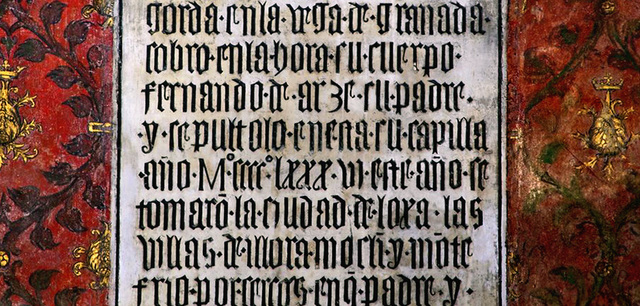 gorda·enla·vega·de·granada·
cobro·enla·hora·su·cuerpo·
fernando·de·arze·su·padre·
·y·sepultolo·enesta·su·capilla
·año·Mº·ccccº·lxxx·vi·este·año·se
tomarō·la·ciudad·de·loxa·las
villas·de·illora·moclī·y·mōte
frio·por·cercos·en q̄·padre·y·